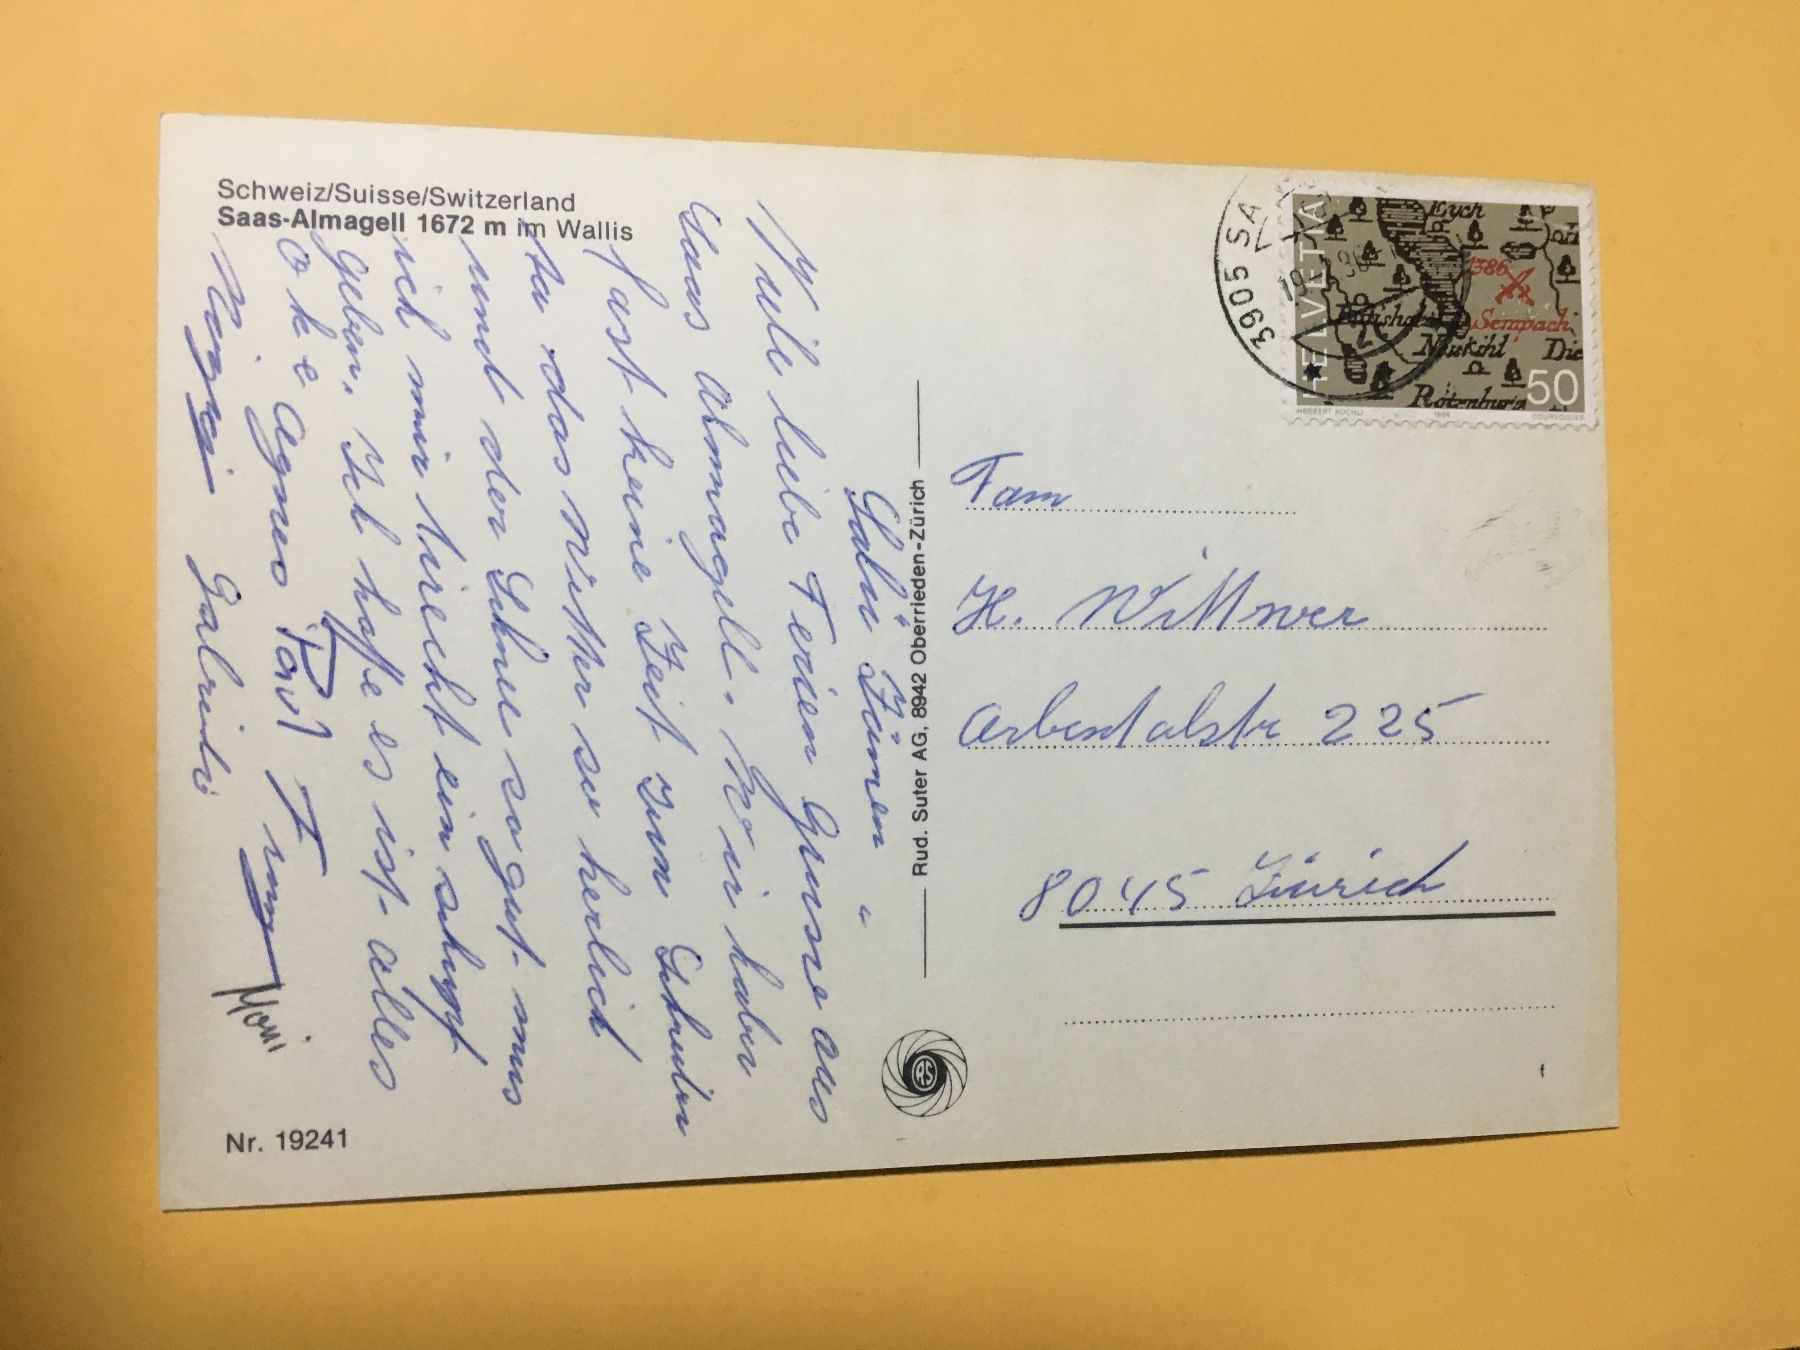 Schweiz/Suisse/Switzerland
Saas-Almagell 1672 m im Wallis
Salü Zämen
Viele liebe Ferien Grüsse aus
Saas Almagell. Wir haben
fast keine Zeit zum Schreiben
da das Wetter so herlich
und der Schnee so gut. mus
ich mir direckt ein schupf
geben. Ich hoffe es ist alles
Oke Agnes
Gabriela
Moni
Nr. 19241
Rud. Suter AG, 8942 Oberrieden-Zürich
RS
3905 SA
HELVETIA
Eych
1386
Sempach
Die
Rotenburg
50
HERBERT AUCHLI
1986
COURVOISIER
Fam
H. Wittwer
Albisstr 225
8045 Zürich